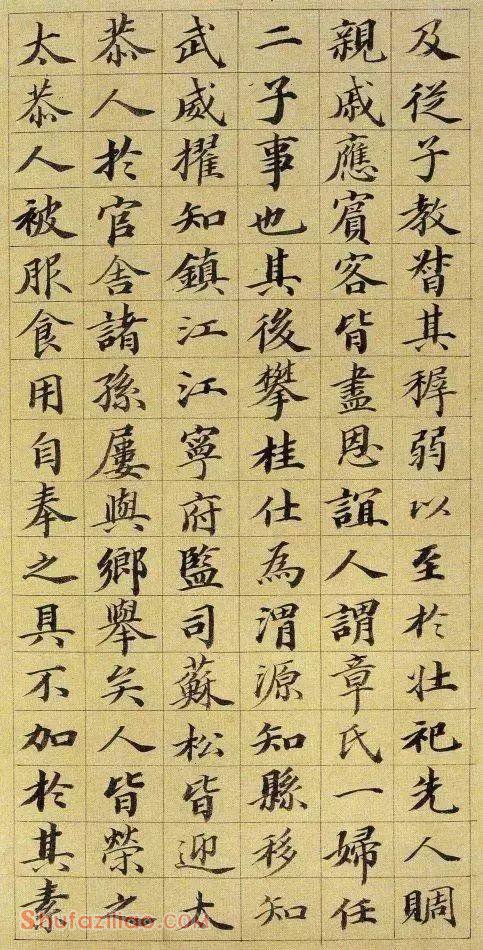 及從子教督其穉弱以至於壯祀先人賙
親戚應賓客皆盡恩誼人謂章氏一婦任
二子事也其後攀桂仕為渭源知縣移知
武威擢知鎮江江寧府監司蘇松皆迎太
恭人於官舍諸孫屢與鄉舉矣人皆榮之
太恭人被服食用自奉之具不加於其素
Shufaziliao.COM